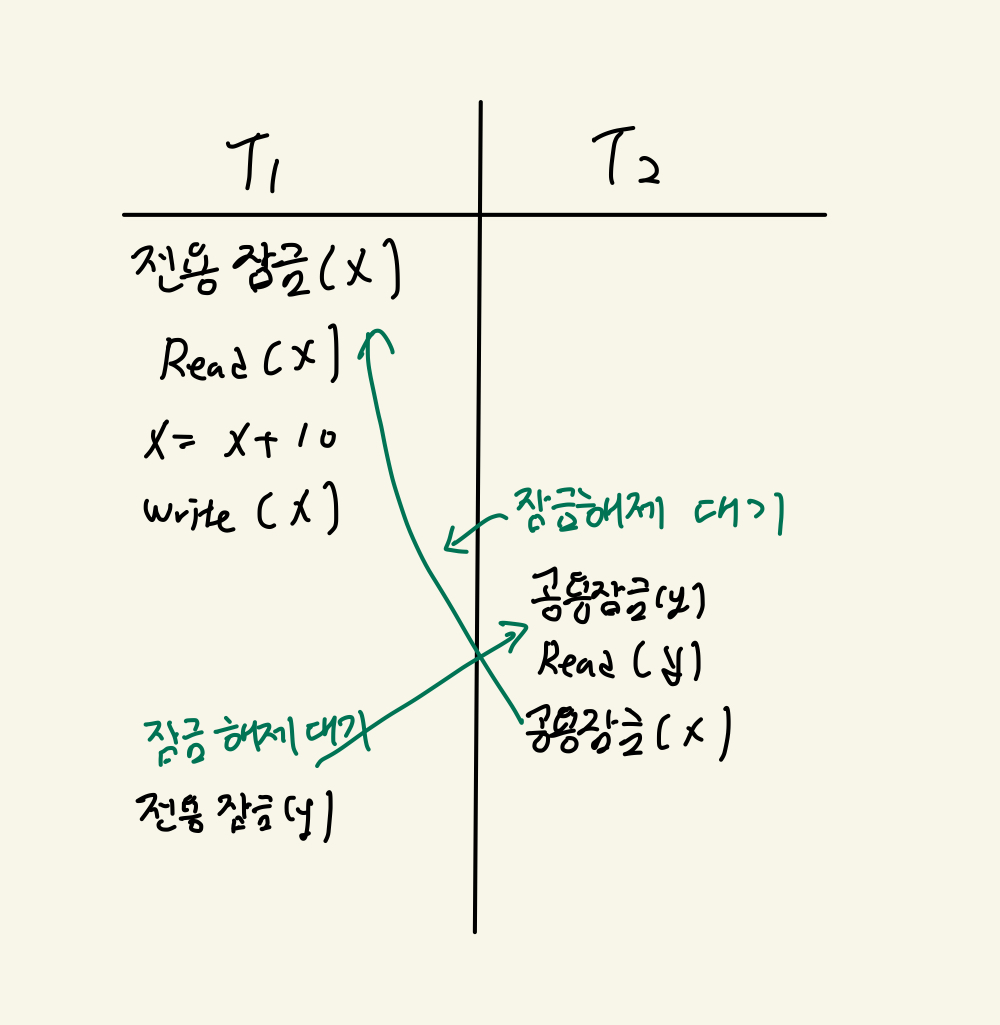 T1 T2
전용 잠금(X)
Read(X)
X= X+10
write(X)
잠금해제 대기
공용잠금(y)
Read(y)
공용잠금(x)
잠금 해제 대기
전용 잠금(y)